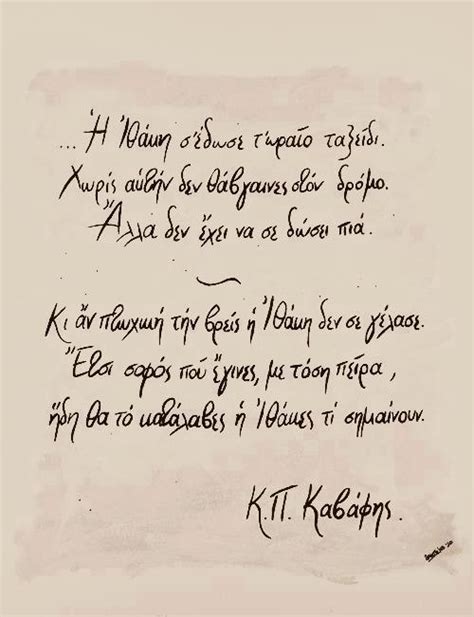 ...Ἡ Ἰθάκη σ'έδωσε τ'ωραίο ταξείδι.
Χωρίς αὐτήν δεν θάβγαινες στόν δρόμο.
Ἄλλα δεν ἔχει να σε δώσει πιά.
Κι ἄν πτωχική τήν βρεῖς ἡ Ἰθάκη δεν σε γέλασε.
Ἔτσι σοφός πού ἔγινες, με τόση πεῖρα,
ἤδη θα τό κατάλαβες ἡ Ἰθάκες τί σημαίνουν.
Κ.Π. Καβάφης.